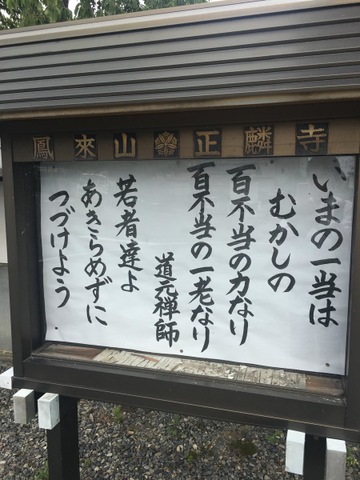 鳳來山 正麟寺
いまの一当は
むかしの
百不当の力なり
百不当の一老なり
道元禅師
若者達よ
あきらめずに
つづけよう